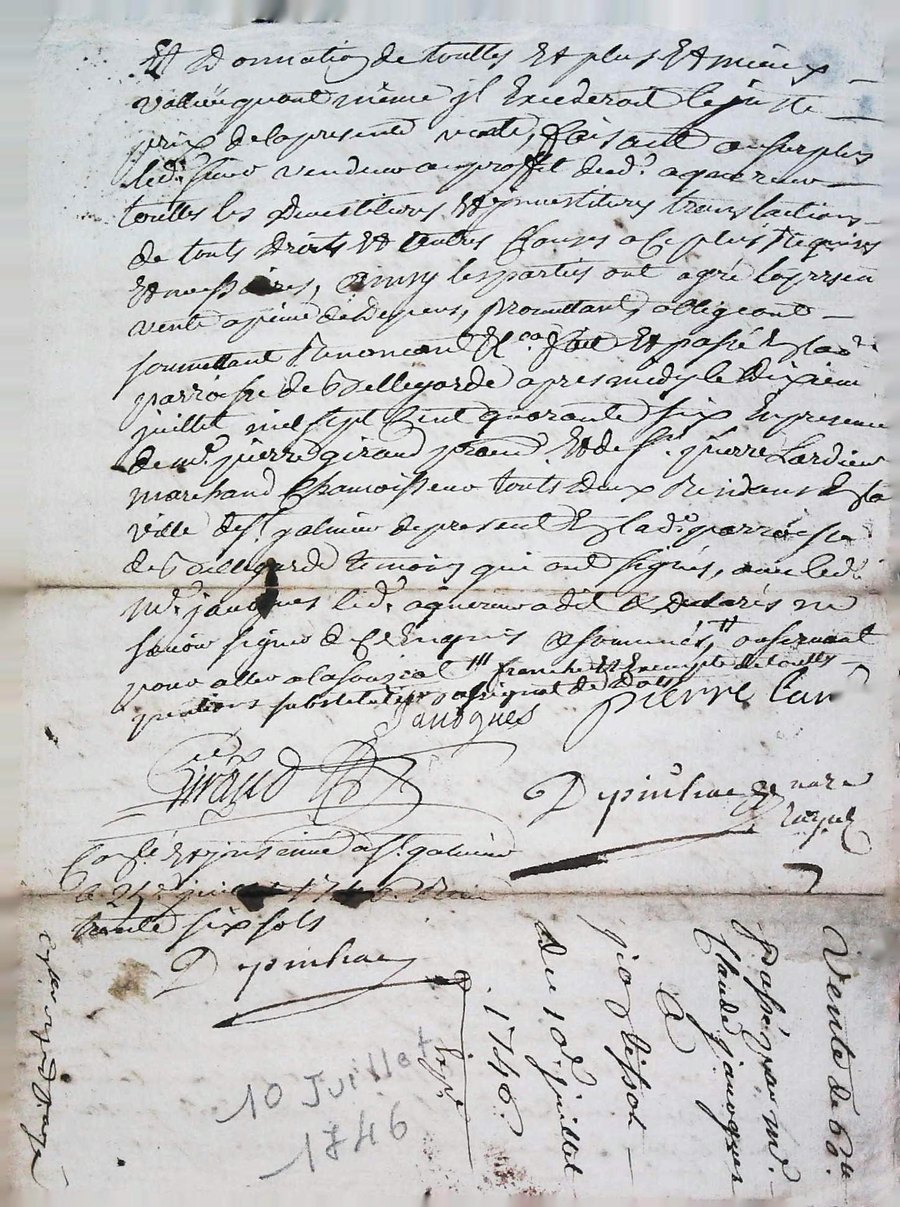 Et Donnation de touttes Et plus Et mieux
vallue quant même jl Excederoit le juste
prix de la presente vente, faisant au surplus
led. sieur vendeur au proffit dud. acquereur
touttes les devestitures Et jnvestitures translactions
de touts droits Et autres Clauses a ce plus requises
Et nessaires, ainsy les parties ont agré la presen
vente a peine de depens, promettant, obligeant
soumettant Renoncant &ca fait Et passé En lad.
parroisse de Bellegarde apres midy le dixieme
juillet mil sept Cent quarante six En presence
de me. pierre giraud et de sr. pierre Lardier
marchand Chamoisseur touts deux Residens En la
ville de st. galmier de present En lad. parroisse
de Bellegarde temoins qui ont signés, avec led.
mr. jauques led. acquereur a dit & declarés ne
scavoir signer de ce Enquis & sommés, observant
pour aller a la franche Et Exempte de touttes
substitution de Dots
Jauques pierre Lar
Giraud Depinhac
Conslé Et jnsinué a st. galmier
le juillet 1746. Reçu
trente six sols
Depinhac
Vente de 60.
passé par me.
Claude Jauques
A
du 10e. juillet
1746.
10 Juillet
1746